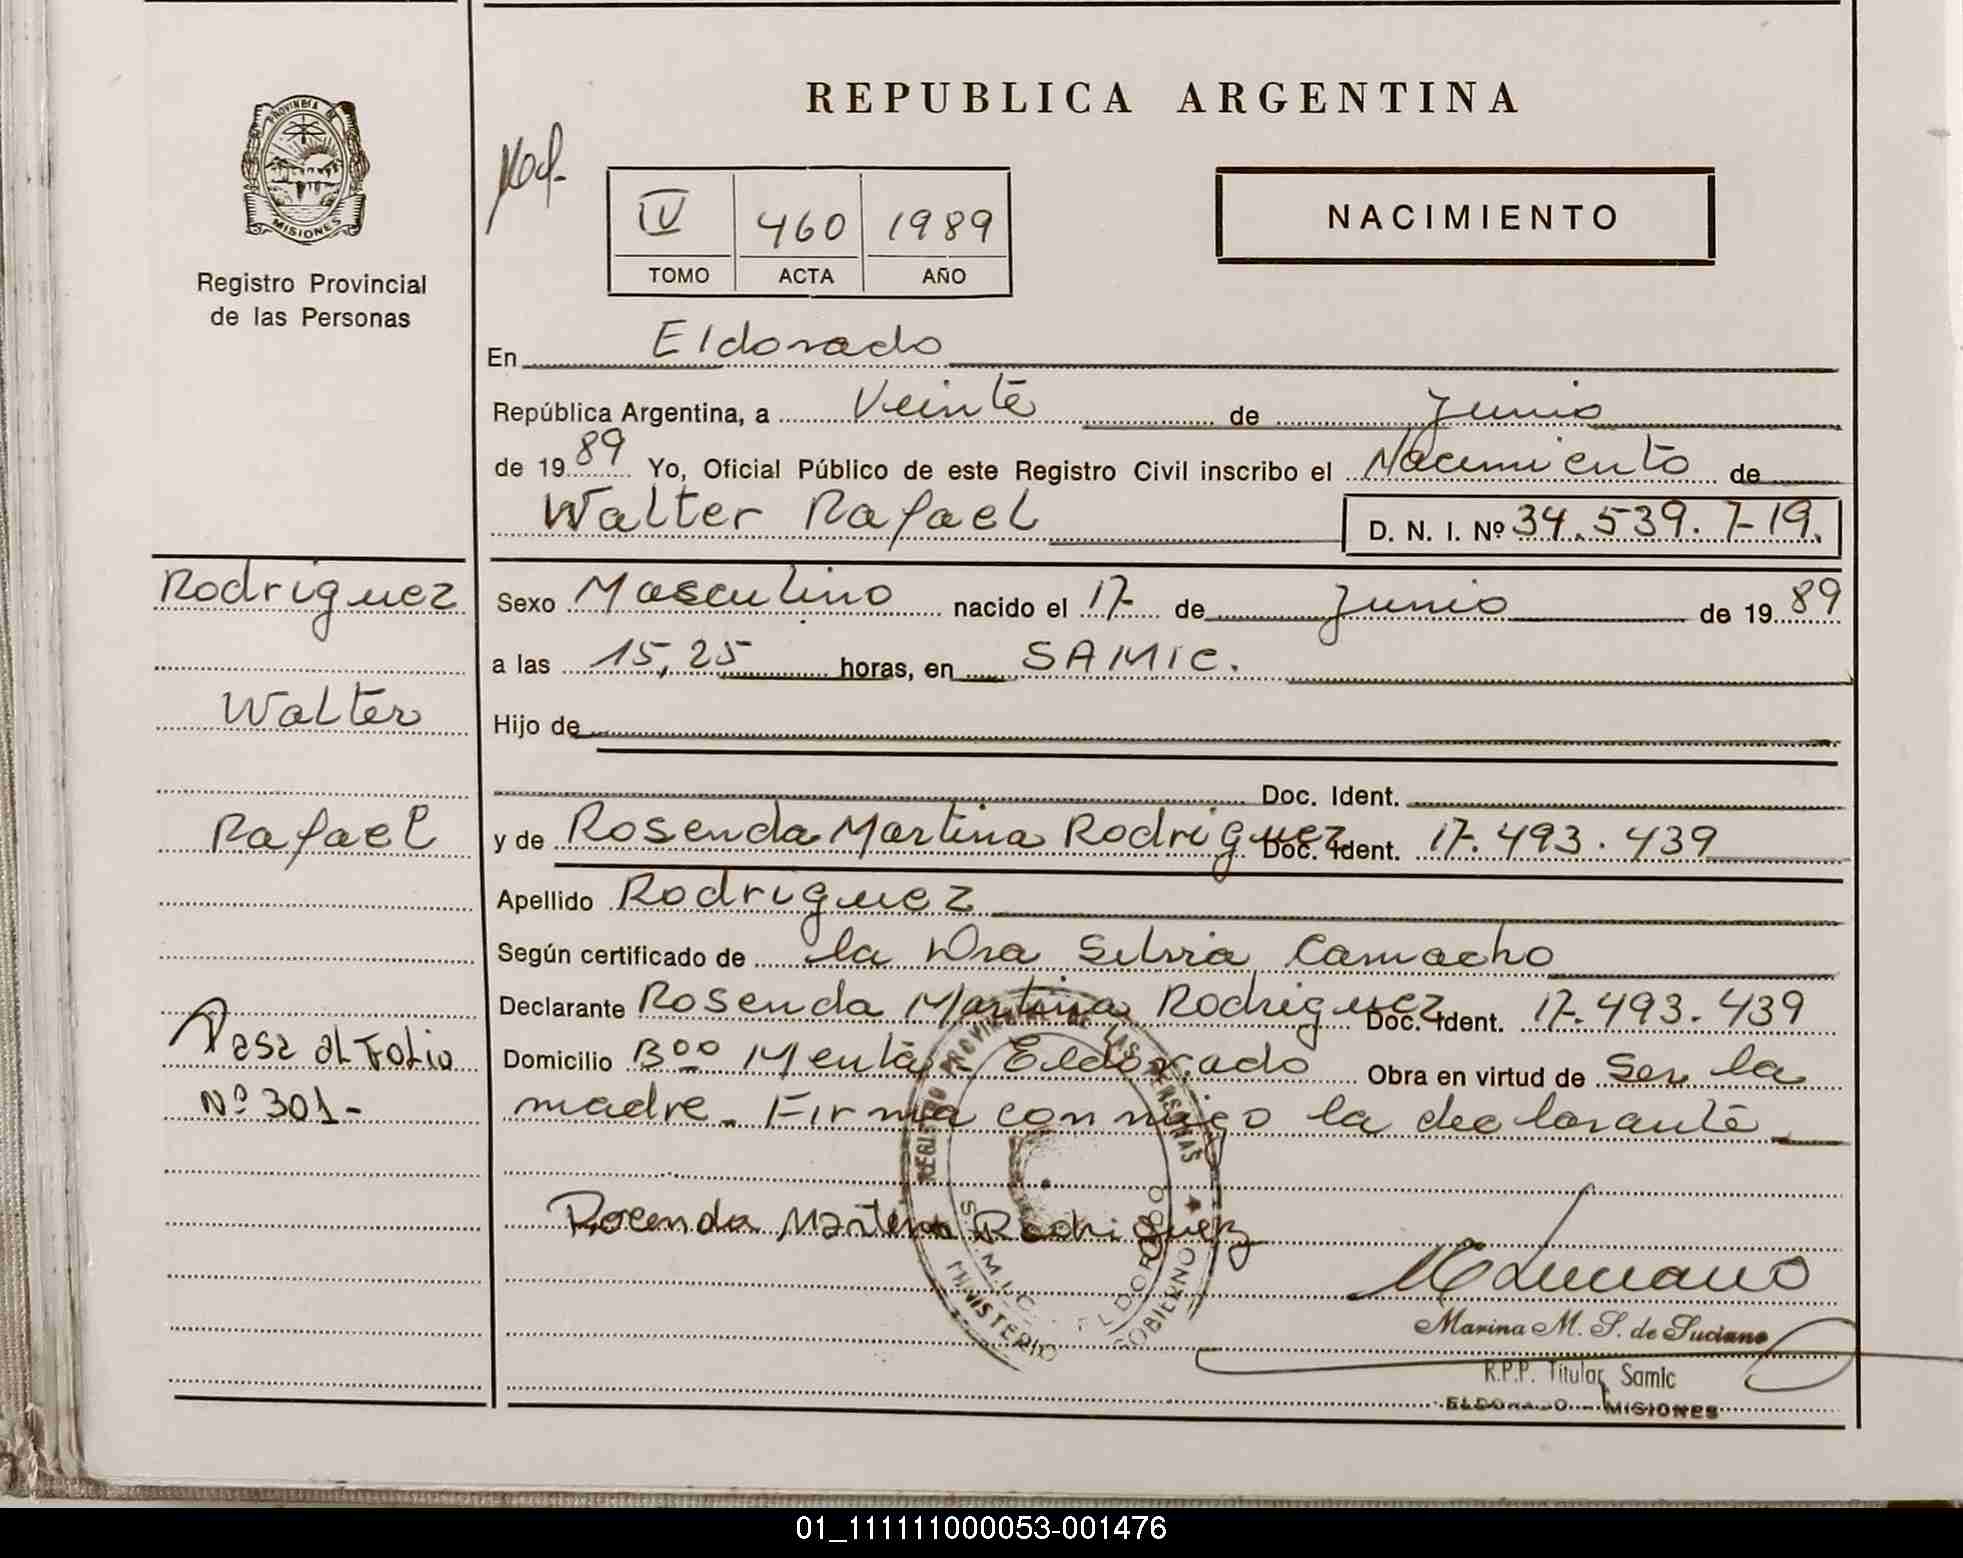 REPUBLICA ARGENTINA
PROVINCIA DE
MISIONES
Registro Provincial
de las Personas
IV 460 1989
TOMO ACTA AÑO
NACIMIENTO
En Eldorado
República Argentina, a Veinte de Junio
de 1989 Yo, Oficial Público de este Registro Civil inscribo el Nacimiento de
Walter Rafael D. N. I. Nº 34.539.719.
Rodriguez
Walter
Rafael
Pase al Folio
Nº 301-
Sexo Masculino nacido el 17 de Junio de 1989
a las 15,25 horas, en SAMIC.
Hijo de
Doc. Ident.
y de Rosenda Martina Rodriguez Doc. Ident. 17.493.439
Apellido Rodriguez
Según certificado de la Dra Silvia Camacho
Declarante Rosenda Martina Rodriguez Doc. Ident. 17.493.439
Domicilio Bº Eldorado Obra en virtud de ser la
madre. Firma conmigo la declarante
Rosenda Martina Rodriguez
REGISTRO PROVINCIAL DE LAS PERSONAS
S.A.M.I.C. ELDORADO
MINISTERIO GOBIERNO
M Luciano
Marina M. S. de Luciano
R.P.P. Titular Samic
ELDORADO - MISIONES
01_111111000053-001476